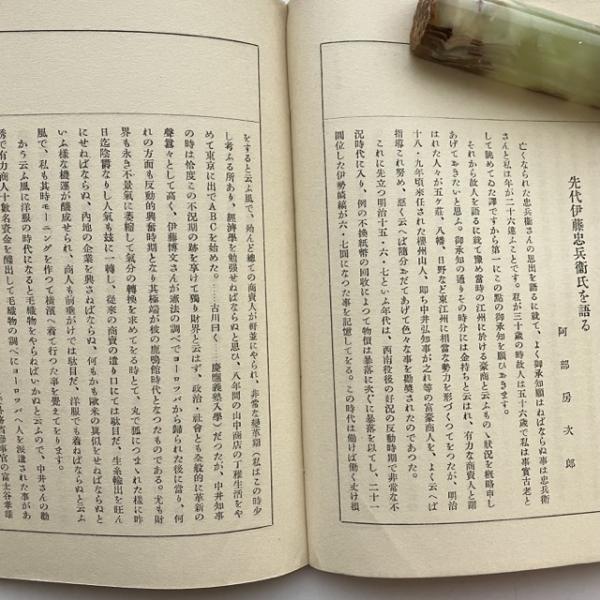 先代伊藤忠兵衞氏を語る
阿部房次郎
亡くなられた忠兵衞さんの思出を語るに就て、よく御承知願はねばならぬ事は忠兵衞
さんと私は年が二十六違ふことです。私が三十歳の時故人は五十六歳で私は事實古老と
して眺めてゐた譯ですから第一にこの點の御承知を願ひおきます。
それから故人を語るに就て豫め當時の江州に於ける豪商と云ふものゝ狀況を概略申し
あげておきたいと思ふ。御承知の通りその時分には金持ちと云はれ、有力な商賣人と謂
はれた人々が五ヶ莊、八幡、日野など東江州に相當な勢力を形づくつてをつたが、明治
十八・九年頃來任された櫻州山人、卽ち中井弘知事が之れ等の富豪商人を、よく云へば
指導これ努め、惡く云へば隨分おだてあげて色々な事を勸奬されたのであつた。
これに先立つ明治十五・六・七といふ年代は、西南役後の好況の反動時期で非常な不
況時代に入り、例の不換紙幣の回收によつて物價は暴落に次ぐに暴落を以てし、二十一
圓位した伊勢縞縞が六・七圓になつた事を記憶してをる。この時代は働けば働く丈け損
をすると云ふ風で、殆んど總ての商賣人が軒並にやられ、非常な變革期（私はこの時少
し考ふる所あり、經濟學を勉强せねばならぬと思ひ、八年間の山中商店の丁稚生活をや
めて東京に出でＡＢＣを始めた。……古川曰く……慶應義塾入學）だつたが、中井知事
の時は恰度この不況期の跡を享けて獨り財界と云はず、政治・社會とも全般的に革新の
聲囂々として高く、伊藤博文さんが憲法の調べでヨーロッパから歸られた後に當り、何
れの方面も反動的興奮時期となり其極端が彼の鹿鳴館時代となつたのである。尤も財
界も永き不景氣に萎縮して氣分の轉換を求めてをる時とて、丸で狐につまゝれた樣に昨
日迄陰鬱なりし人氣も玆に一轉し、從來の商賣の遣り口にては駄目だ、生糸輸出を旺ん
にせねばならぬ、內地の企業を興さねばならぬ、何もかも歐米の眞似をせねばならぬと
いふ樣な機運が釀成せられ、商人も前垂がけでは駄目だ、洋服でも着ねばならぬと云ふ
風で、私も其時モーニングを作つて橫濱へ着て行つた事を覺えてをります。
かう云ふ風に洋服の時代になると毛織物をやらねばいかぬと云ふので、中井さんの勸
誘で有力商人十數名資金を醵出して毛織物の調べにヨーロッパへ人を派遣された事があ